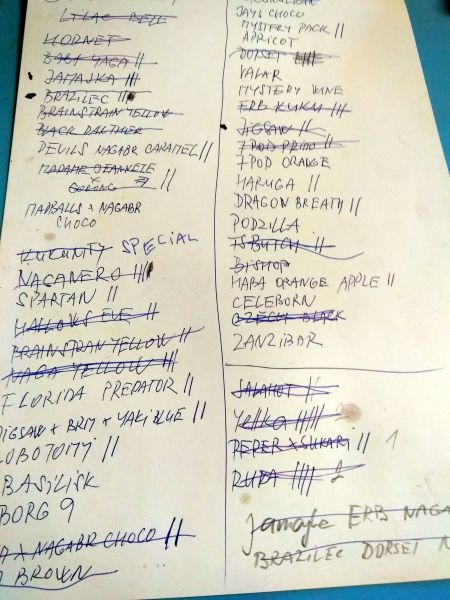 LILAC BELL
HORNET
BABA YAGA ||
JAMAJKA ||||
BRAZILEC ||||
BRAINSTRAIN YELLOW
BLACK PANTHER
DEVILS NAGABR CARAMEL ||
MADAME
X ||
MADBALLS X NAGABR
CHOCO
SPECIAL
NAGANERO ||||
SPARTAN ||
HALLOWS EVE ||
BRAINSTRAN YELLOW ||
NAGA YELLOW |||
FLORIDA PREDATOR ||
JIGSAW X BRIT X YAKI BLUE ||
LOBOTOMY ||
BASILISK
BORG 9
X NAGABR CHOCO ||
BROWN
JAYS CHOCO
MYSTERY PACK ||
APRICOT
DORSET ||||
VALAR
MYSTERY WINE
ERB KUKU |||
JIGSAW ||
7 POD PRIMO ||
7POD ORANGE
HARUGA ||
DRAGON BREATH ||
PODZILLA
TS BUTCH ||
BISHOP
HABA ORANGE APPLE ||
CELEBORN
CZECH BLACK
ZANZIBAR
JALAHOT ||
Yellka |||||
PEPER X SUKARI || 1
RUPA |||| 2
ERB NAGA
BRAZILEC DORSET N